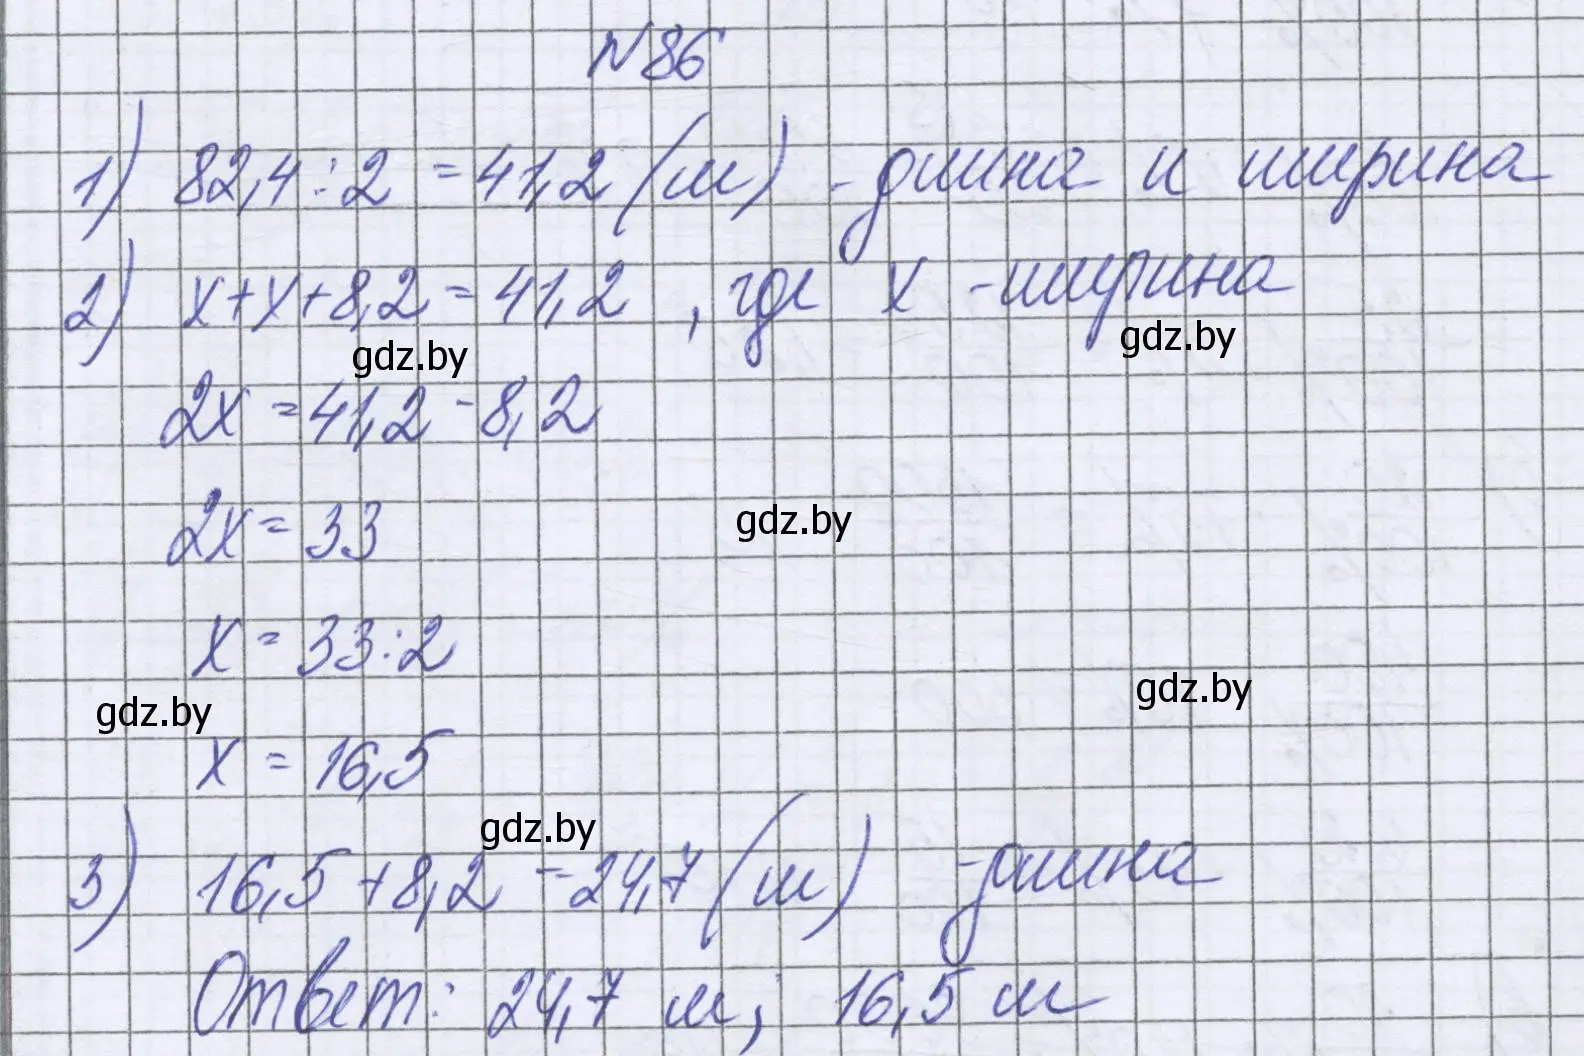 №86
1) 82,4:2 = 41,2 (м) - длина и ширина
2) x+x+8,2 = 41,2 , где x - ширина
gdz.by
gdz.by
2x = 41,2 - 8,2
2x = 33
gdz.by
x = 33:2
gdz.by
gdz.by
x = 16,5
gdz.by
3) 16,5 + 8,2 = 24,7 (м) - длина
Ответ: 24,7 м; 16,5 м